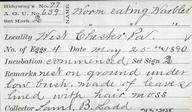 Ridgway's No. 77
A. O. U. No. 639 NAME Worm eating Warbler
Set Mark
Locality West Chester Pa.
No. of Eggs 4 Date May 25th 1890
Incubation commenced Set Sign 2
Remarks nest on ground under
low bush, made of leaves
lined with hair moss
Collector Saml. B. Ladd